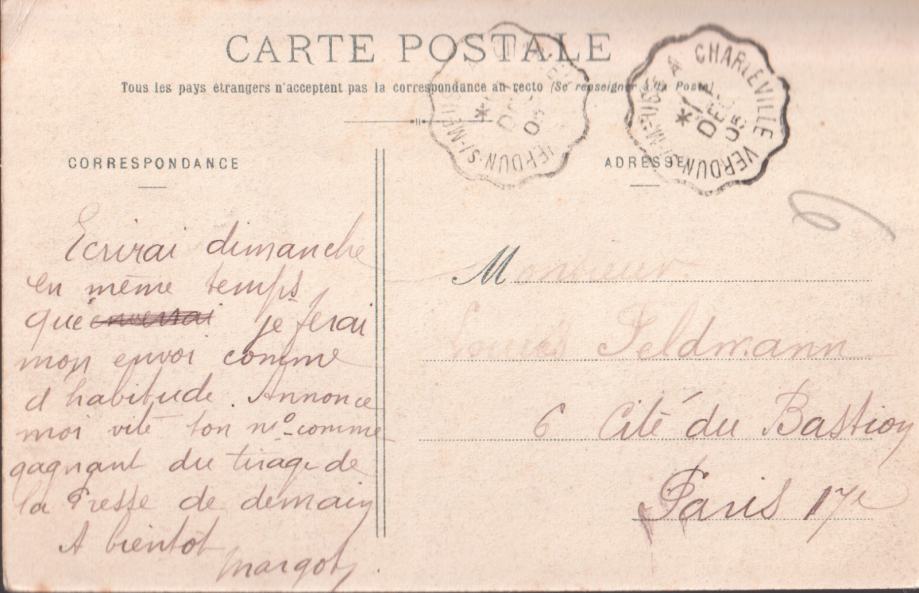 CARTE POSTALE
Tous les pays étrangers n'acceptent pas la correspondance au recto (Se renseigner à la Poste)
CORRESPONDANCE
ADRESSE
CHARLEVILLE
VERDUN-S/-MEUSE A
DEC
05
VERDUN-S/-MEUSE
05
Ecrirai dimanche
en même temps
que je ferai
mon envoi comme
d'habitude. Annonce
moi vite ton nº comme
gagnant du tirage de
la Presse de demain
A bientot
Margot
Monsieur
Louis Feldmann
6 Cité du Bastion
Paris 17e